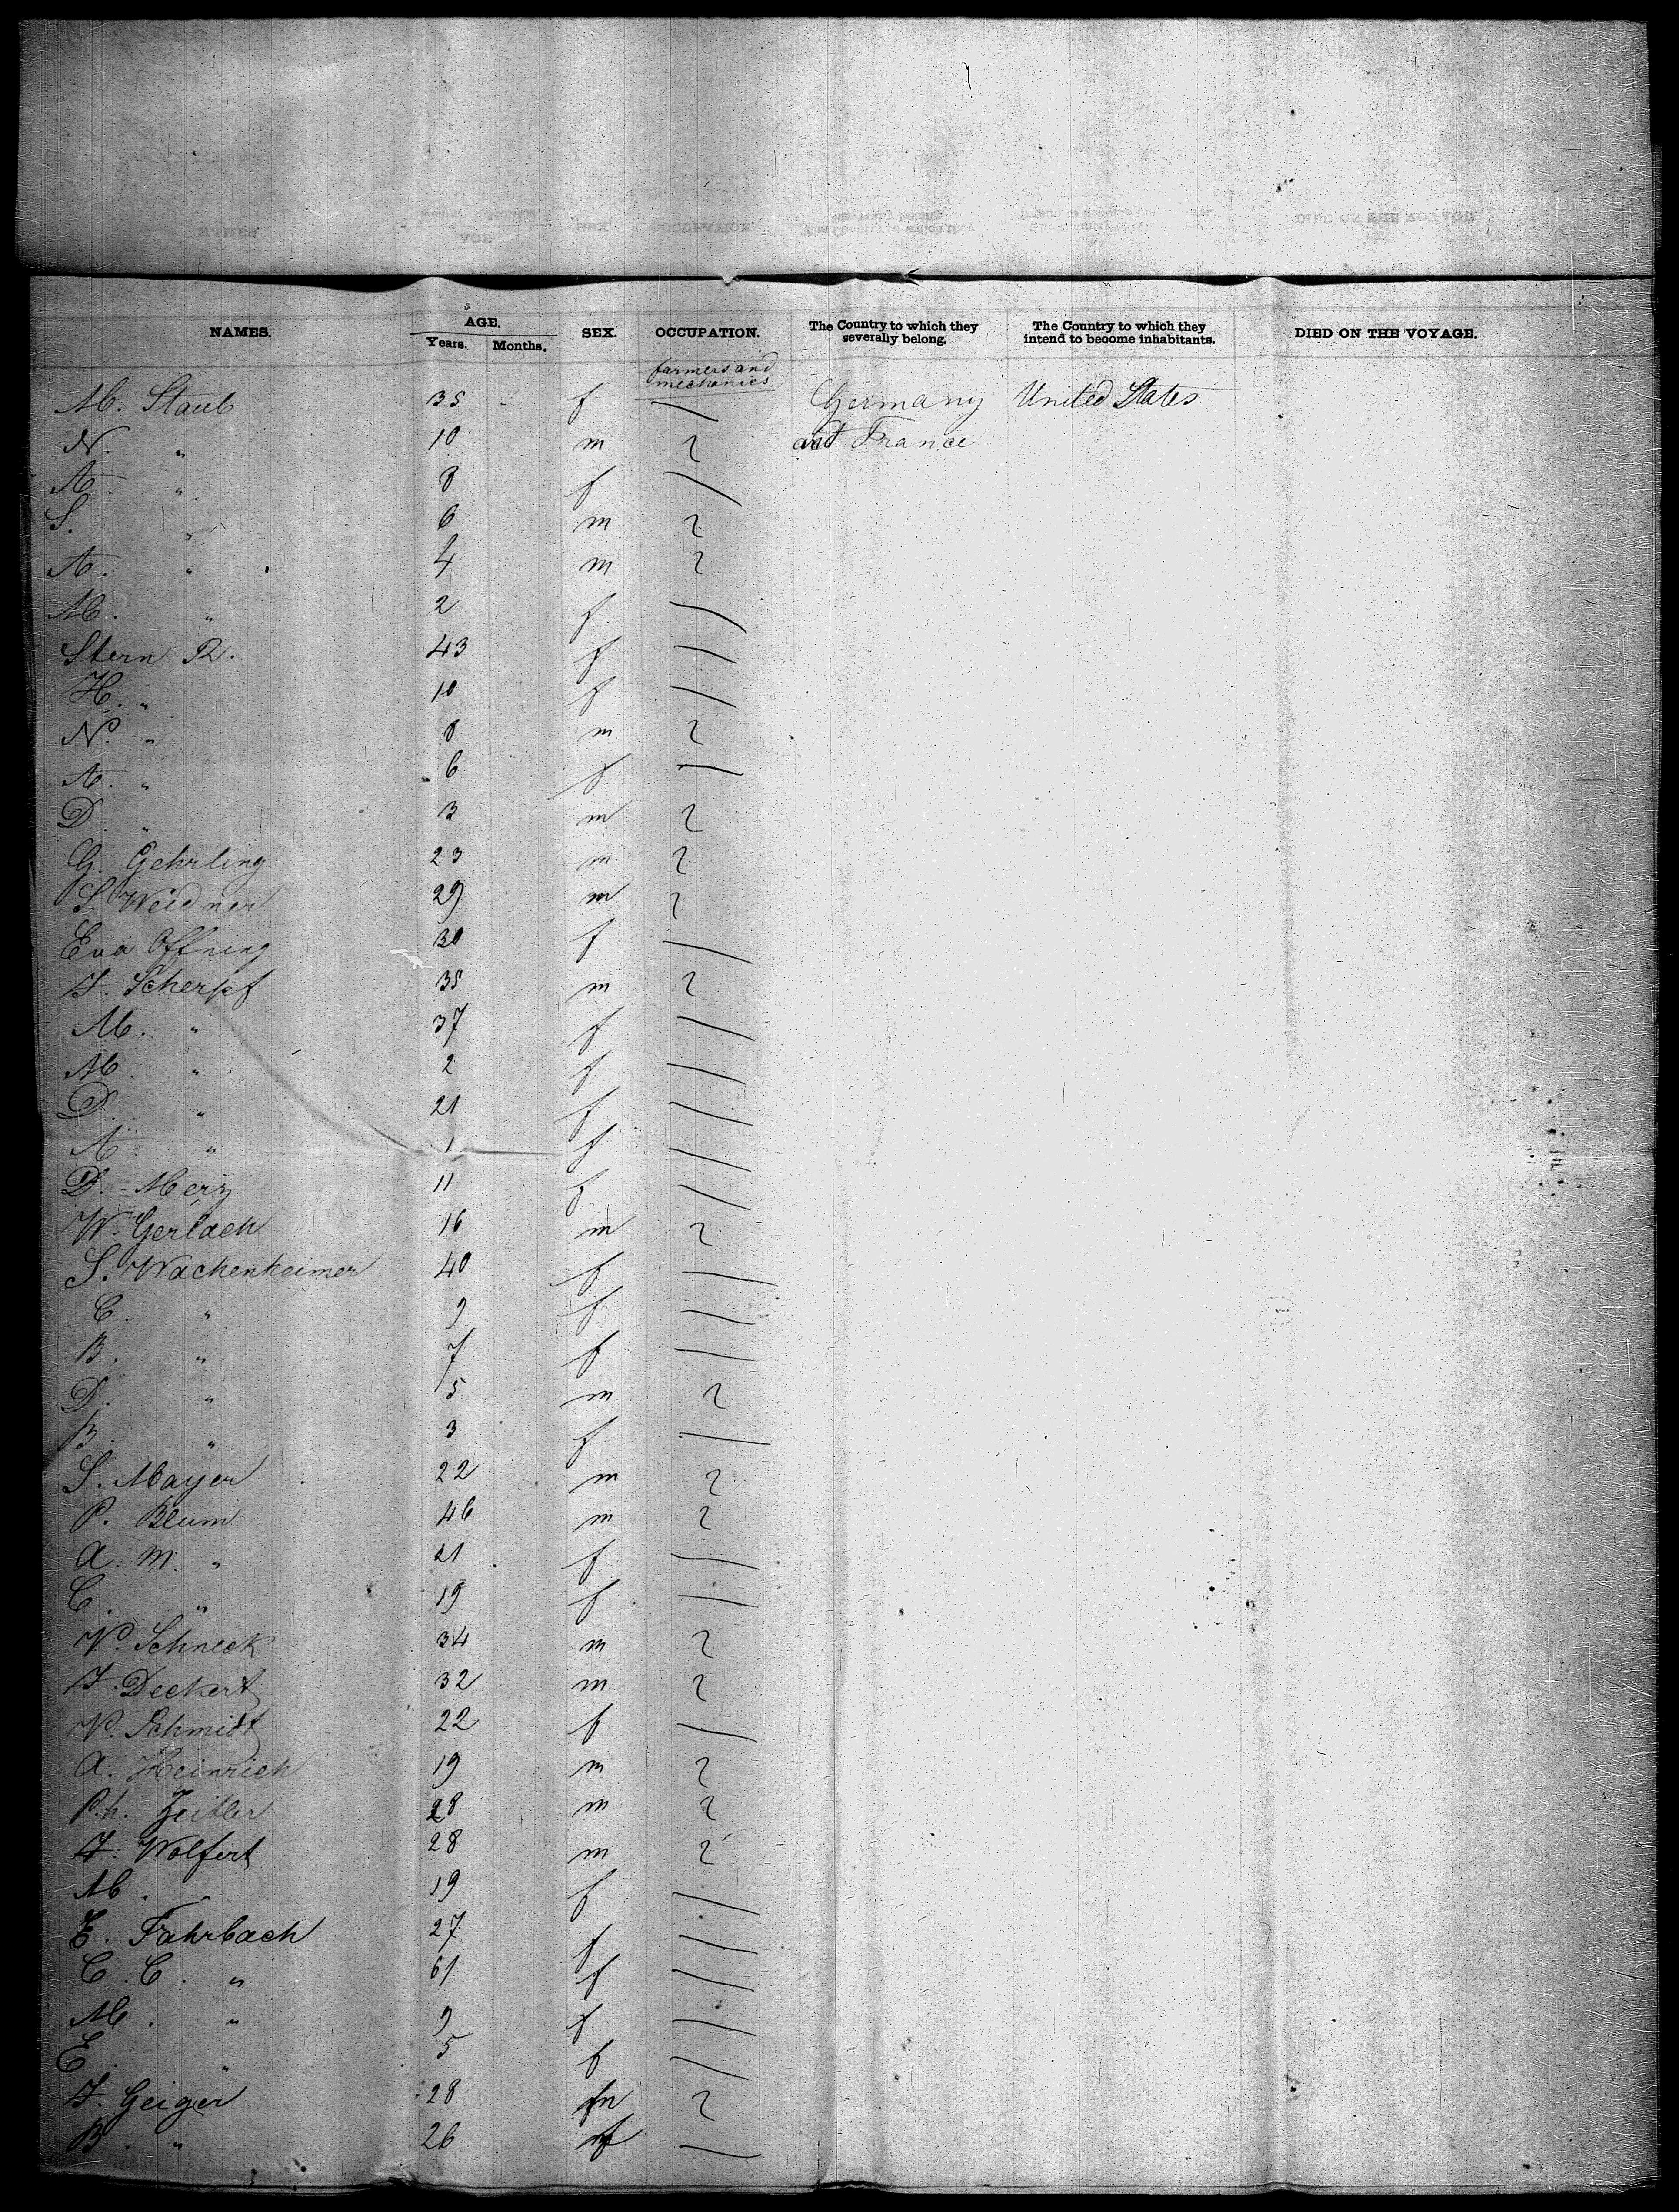 NAMES. AGE. Years. Months. SEX. OCCUPATION. The Country to which they severally belong. The Country to which they intend to become inhabitants. DIED ON THE VOYAGE.
farmers and mechanics
M. Staub 35 f Germany United States
N. " 10 m and France
A. " 8 f
S. " 6 m
A. " 4 m
M. " 2 f
Stern R. 43 f
H. " 10 f
N. " 8 m
A. " 6 f
D. " 3 m
G. Gehrling 23 m
S. Weidner 29 m
Eva Offning 30 f
J. Scherpf 35 m
M. " 37 f
M. " 2 f
D. " 21 f
A. " 1 f
D. Merz 11 f
W. Gerlach 16 m
S. Wachenheimer 40 f
C. " 9 f
B. " 7 f
D. " 5 m
B. " 3 f
S. Mayer 22 m
P. Blum 46 m
A. M. " 21 f
C. " 19 f
N. Schneck 34 m
J. Deckert 32 m
N. Schmidt 22 f
A. Heinrich 19 m
Ph. Zeitler 28 m
J. Wolfert 28 m
M. " 19 f
E. Fahrbach 27 f
C. C. " 61 f
M. " 9 f
E. " 5 f
J. Geiger 28 m
B. " 26 f